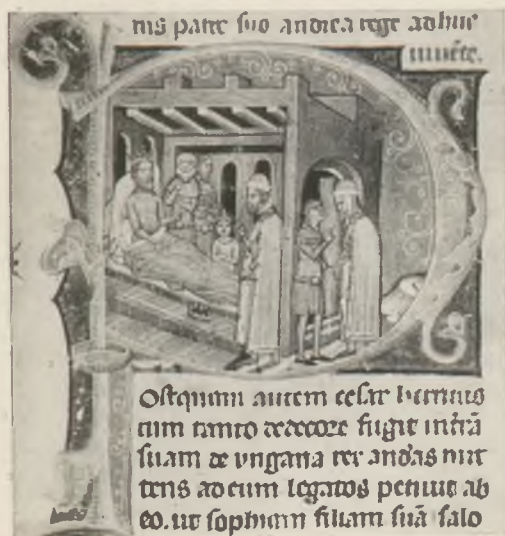 nis patre suo andrea rege adhuc
uiuēte.
Postquam autem cesar henricus
cum tanto dedecore fugit in trā
suam de vngaria rex and'as mit
tens ad eum legatos petiuit ab
eo. ut sophiam filiam suā salo